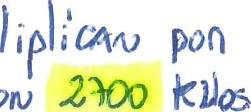 liplican por
on 2700 kilos